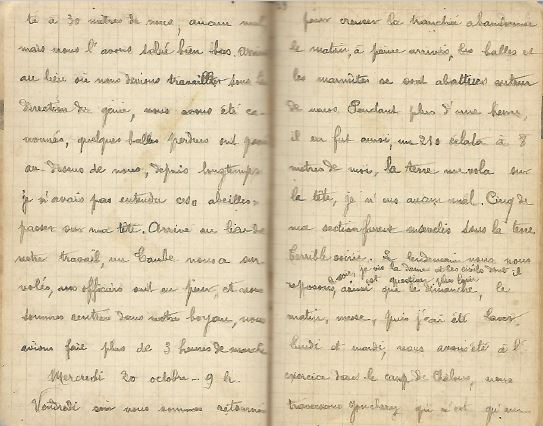 té à 30 mètres de nous, aucun mal
mais nous l'avons salué bien bas. Arrivé
au lieu où nous devions travailler sous la
direction du génie, nous avons été ca-
nonnés, quelques balles perdues ont passé
au-dessus de nous, depuis longtemps
je n'avais pas entendu ces "abeilles"
passer sur ma tête. Arrivé au lieu de
notre travail, un Taube nous a sur-
volés, nos officiers ont eu peur, et nous
sommes rentrés dans notre boyau, nous
avions fait plus de 3 heures de marche
Mercredi 20 octobre - 9 h.
Vendredi soir nous sommes retournés
pour creuser la tranchée abandonnée
le matin, à peine arrivés, les balles et
les marmites se sont abattues autour
de nous. Pendant plus d'une heure,
il en fut ainsi, un 210 éclata à 8
mètres de moi, la terre me vola sur
la tête, je n'eus aucun mal. Cinq de
ma section furent ensevelis dans la terre
terrible soirée. Le lendemain nous nous
soir, je vis la dame et les civils dont il
est question plus loin
reposons, ainsi que le dimanche, le
matin, messe, puis j'ai été laver
lundi et mardi, nous avons été à l'
exercice dans le camp de Châlons, nous
traversons Jonchery qui n'est qu'un